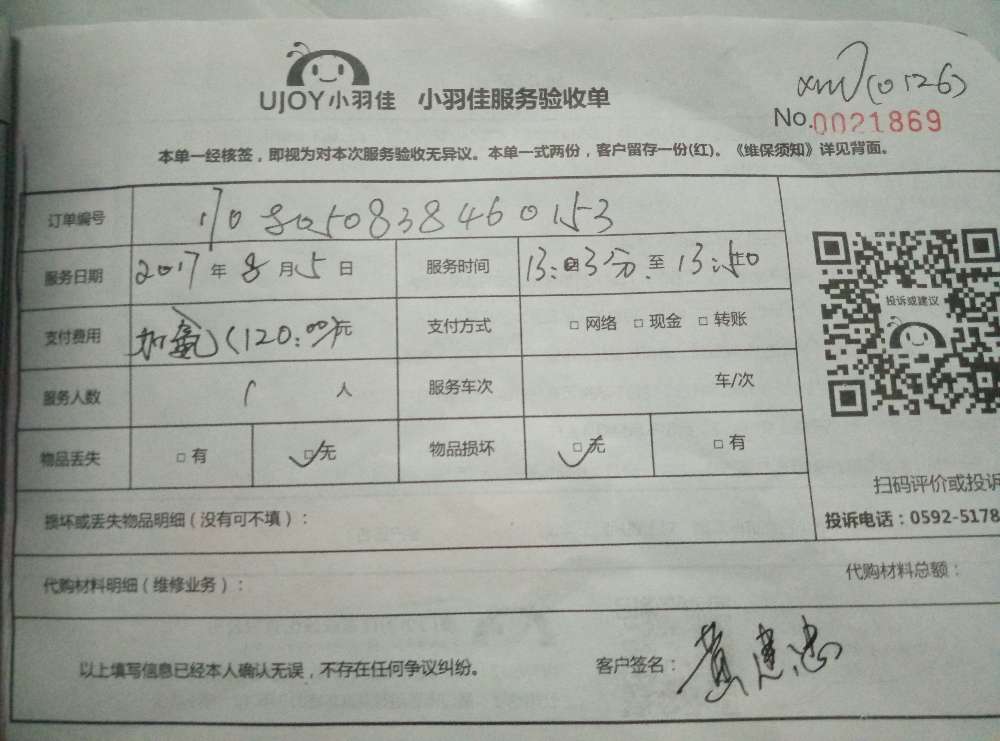 UJOY小羽佳 小羽佳服务验收单
(0126)
No.0021869
本单一经核签，即视为对本次服务验收无异议。本单一式两份，客户留存一份(红)。《维保须知》详见背面。
订单编号 1708050838460153
服务日期 2017年8月5日 服务时间 13:03分至13:50
投诉或建议
支付费用 加氟(120.00)元 支付方式 □网络 □现金 □转账
服务人数 1 人 服务车次 车/次
物品丢失 □有 □无 物品损坏 □无 □有
扫码评价或投诉
损坏或丢失物品明细（没有可不填）：
投诉电话：0592-5178
代购材料明细（维修业务）： 代购材料总额：
以上填写信息已经本人确认无误，不存在任何争议纠纷。 客户签名：黄建忠